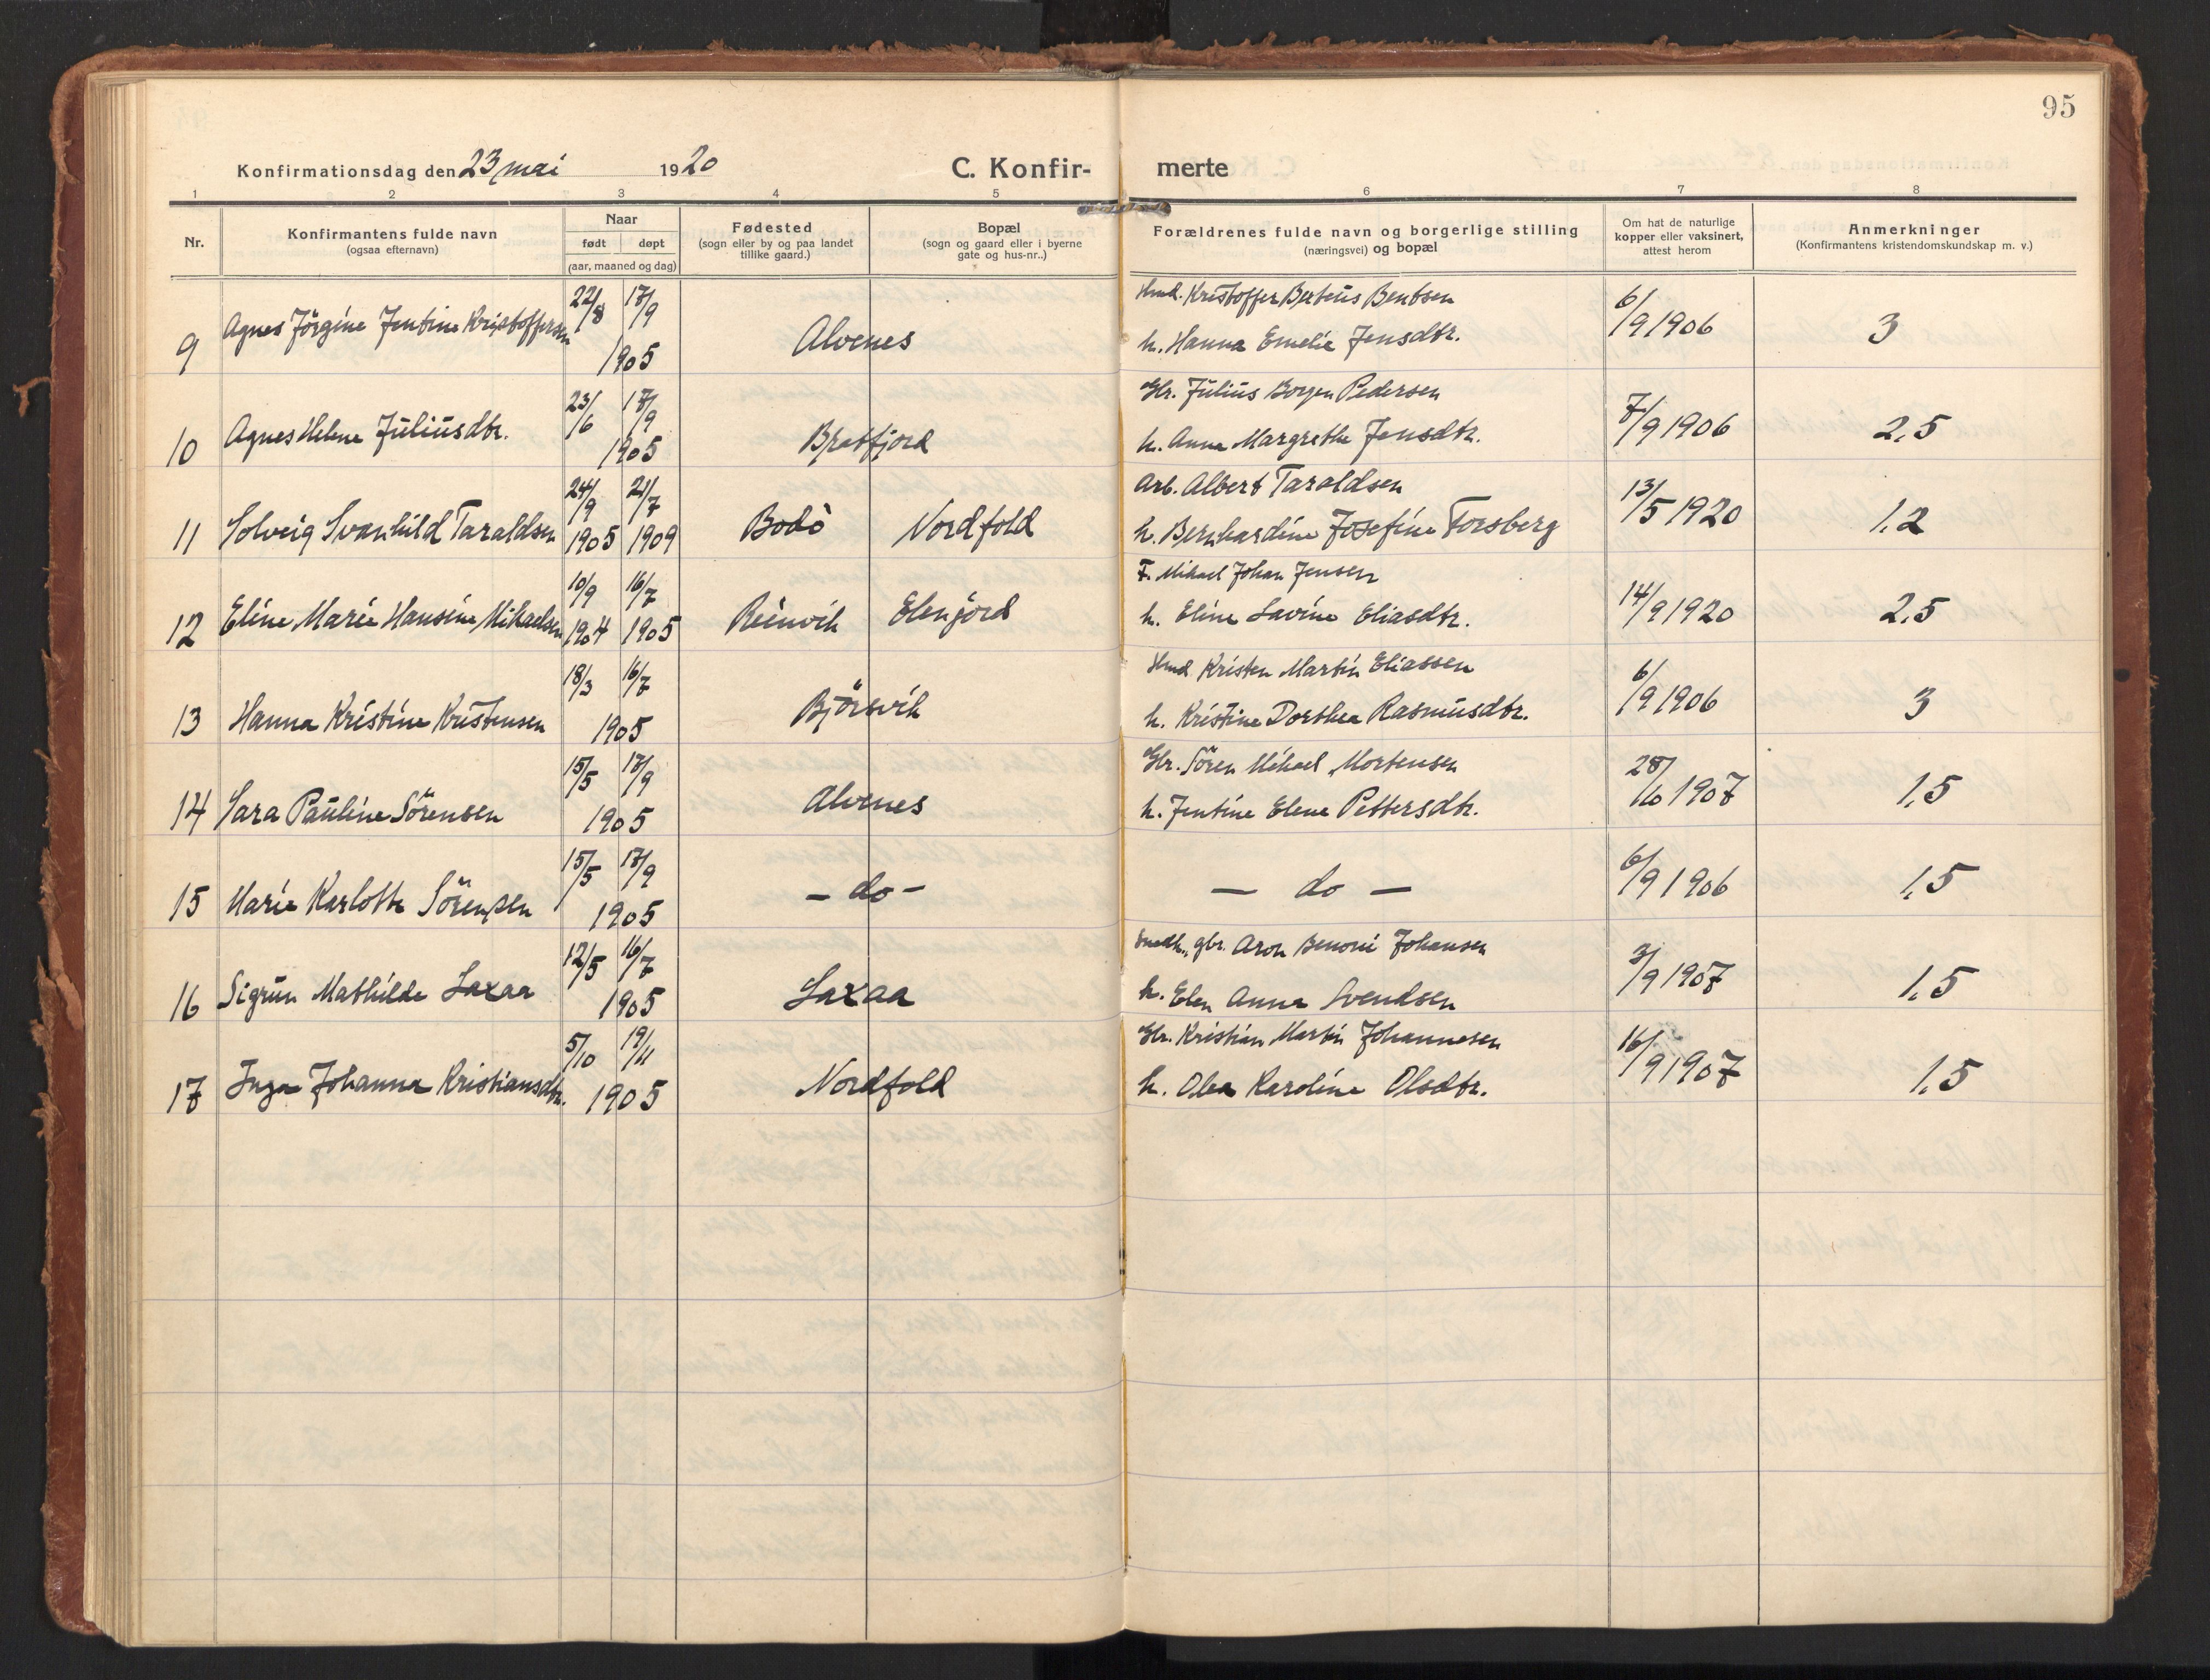 95
Konfirmationsdag den 23 mai 1920 C. Konfir- merte
1 2 3 4 5 6 7 8
Nr. Konfirmantens fulde navn (ogsaa efternavn) Naar født døpt (aar, maaned og dag) Fødested (sogn eller by og paa landet tillike gaard.) Bopæl (sogn og gaard eller i byerne gate og hus-nr..) Forældrenes fulde navn og borgerlige stilling (næringsvei) og bopæl Om hat de naturlige kopper eller vaksinert, attest herom Anmerkninger (Konfirmantens kristendomskundskap m. v.)
22/8 17/9 Hmd. Kristoffer Berteus Bentsen 6/9 1906
9 Agnes Jörgine Jentine Kristoffersen 1905 Alvenes h. Hanna Emelie Jensdtr. 3
23/6 17/9 Gbr. Julius Borgen Pedersen 7/9 1906
10 Agnes Helene Juliusdtr. 1905 Brotfjord h. Anna Margrethe Jensdtr. 2,5
24/9 21/7 Arb. Albert Taraldsen 13/5 1920
11 Solveig Svanhild Taraldsen 1905 1909 Bodö Nordfold h. Bernhardine Josefine Forsberg 1,2
10/9 16/7 F. Mikael Johan Jensen 14/9 1920
12 Eline Marie Hansine Mikaelsen 1904 1905 Reinvik Elenjord h. Eline Lavine Eliasdtr. 2,5
18/3 16/7 Hmd Kristen Martin Eliassen 6/9 1906
13 Hanna Kristine Kristensen 1905 Björsvik h. Kristine Dorthea Rasmusdtr. 3
15/5 17/9 Gbr. Sören Mikael Mortensen 28/10 1907
14 Sara Pauline Sörensen 1905 Alvenes h. Jentine Elene Pettersdtr. 1,5
15/5 17/9 6/9 1906
15 Marie Karlotte Sörensen 1905 - do - - do - 1,5
12/5 16/7 gbr. Aron Benoni Johansen 3/9 1907
16 Sigrun Mathilde Laxaa 1905 Laxaa h. Elen Anna Svendsen 1,5
5/10 19/11 Gbr. Kristian Martin Johannesen 16/9 1907
17 Inga Johanna Kristiansdtr. 1905 Nordfold h. Olea Karoline Olsdtr. 1,5